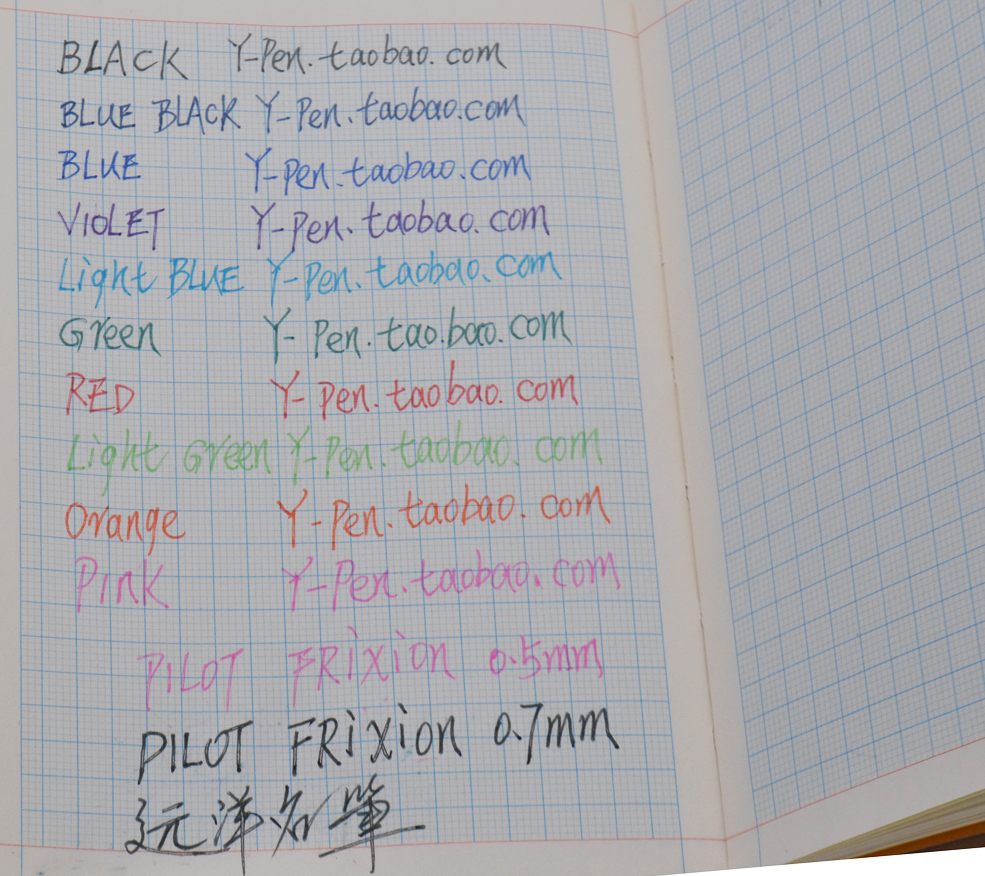 BLACK Y-Pen.taobao.com
BLUE BLACK Y-Pen.taobao.com
BLUE Y-Pen.taobao.com
VIOLET Y-Pen.taobao.com
Light BLUE Y-Pen.taobao.com
Green Y-Pen.tao.bao.com
RED Y-Pen.taobao.com
Light Green Y-Pen.taobao.com
Orange Y-Pen.taobao.com
Pink Y-Pen.taobao.com
PILOT FRiXion 0.5mm
PILOT FRiXion 0.7mm
远洋名筆